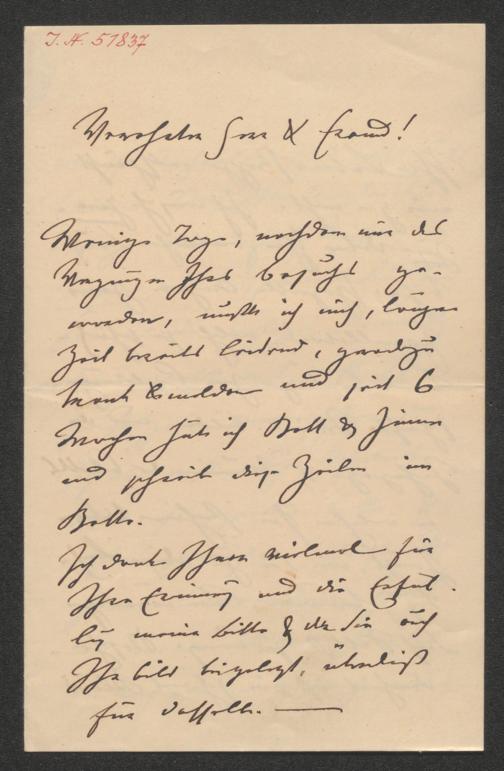 J. N. 51837
Verehrter Herr & Freund!
Wenige Tage, nachdem mir das
Vergnügen Ihres Besuchs ge-
worden, mußte ich mich, länger
Zeit bereits leidend, geradezu
krank melden und seit 6
Wochen hüte ich Bett & Zimmer
und schreibe diese Zeilen im
Bette.
Ich danke Ihnen vielmals für
Ihre Erinnerung und die Erfül-
lung meiner Bitte & da Sie auch
Ihr Bild beigelegt, überdieß
für dasselbe. —